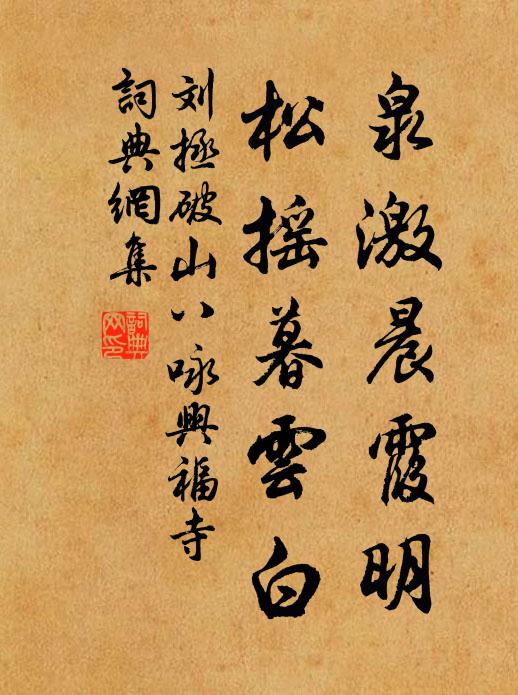 泉激晨霞明
松摇暮雲白
刘拯破山八咏興福寺
詞典網集
詞典网印